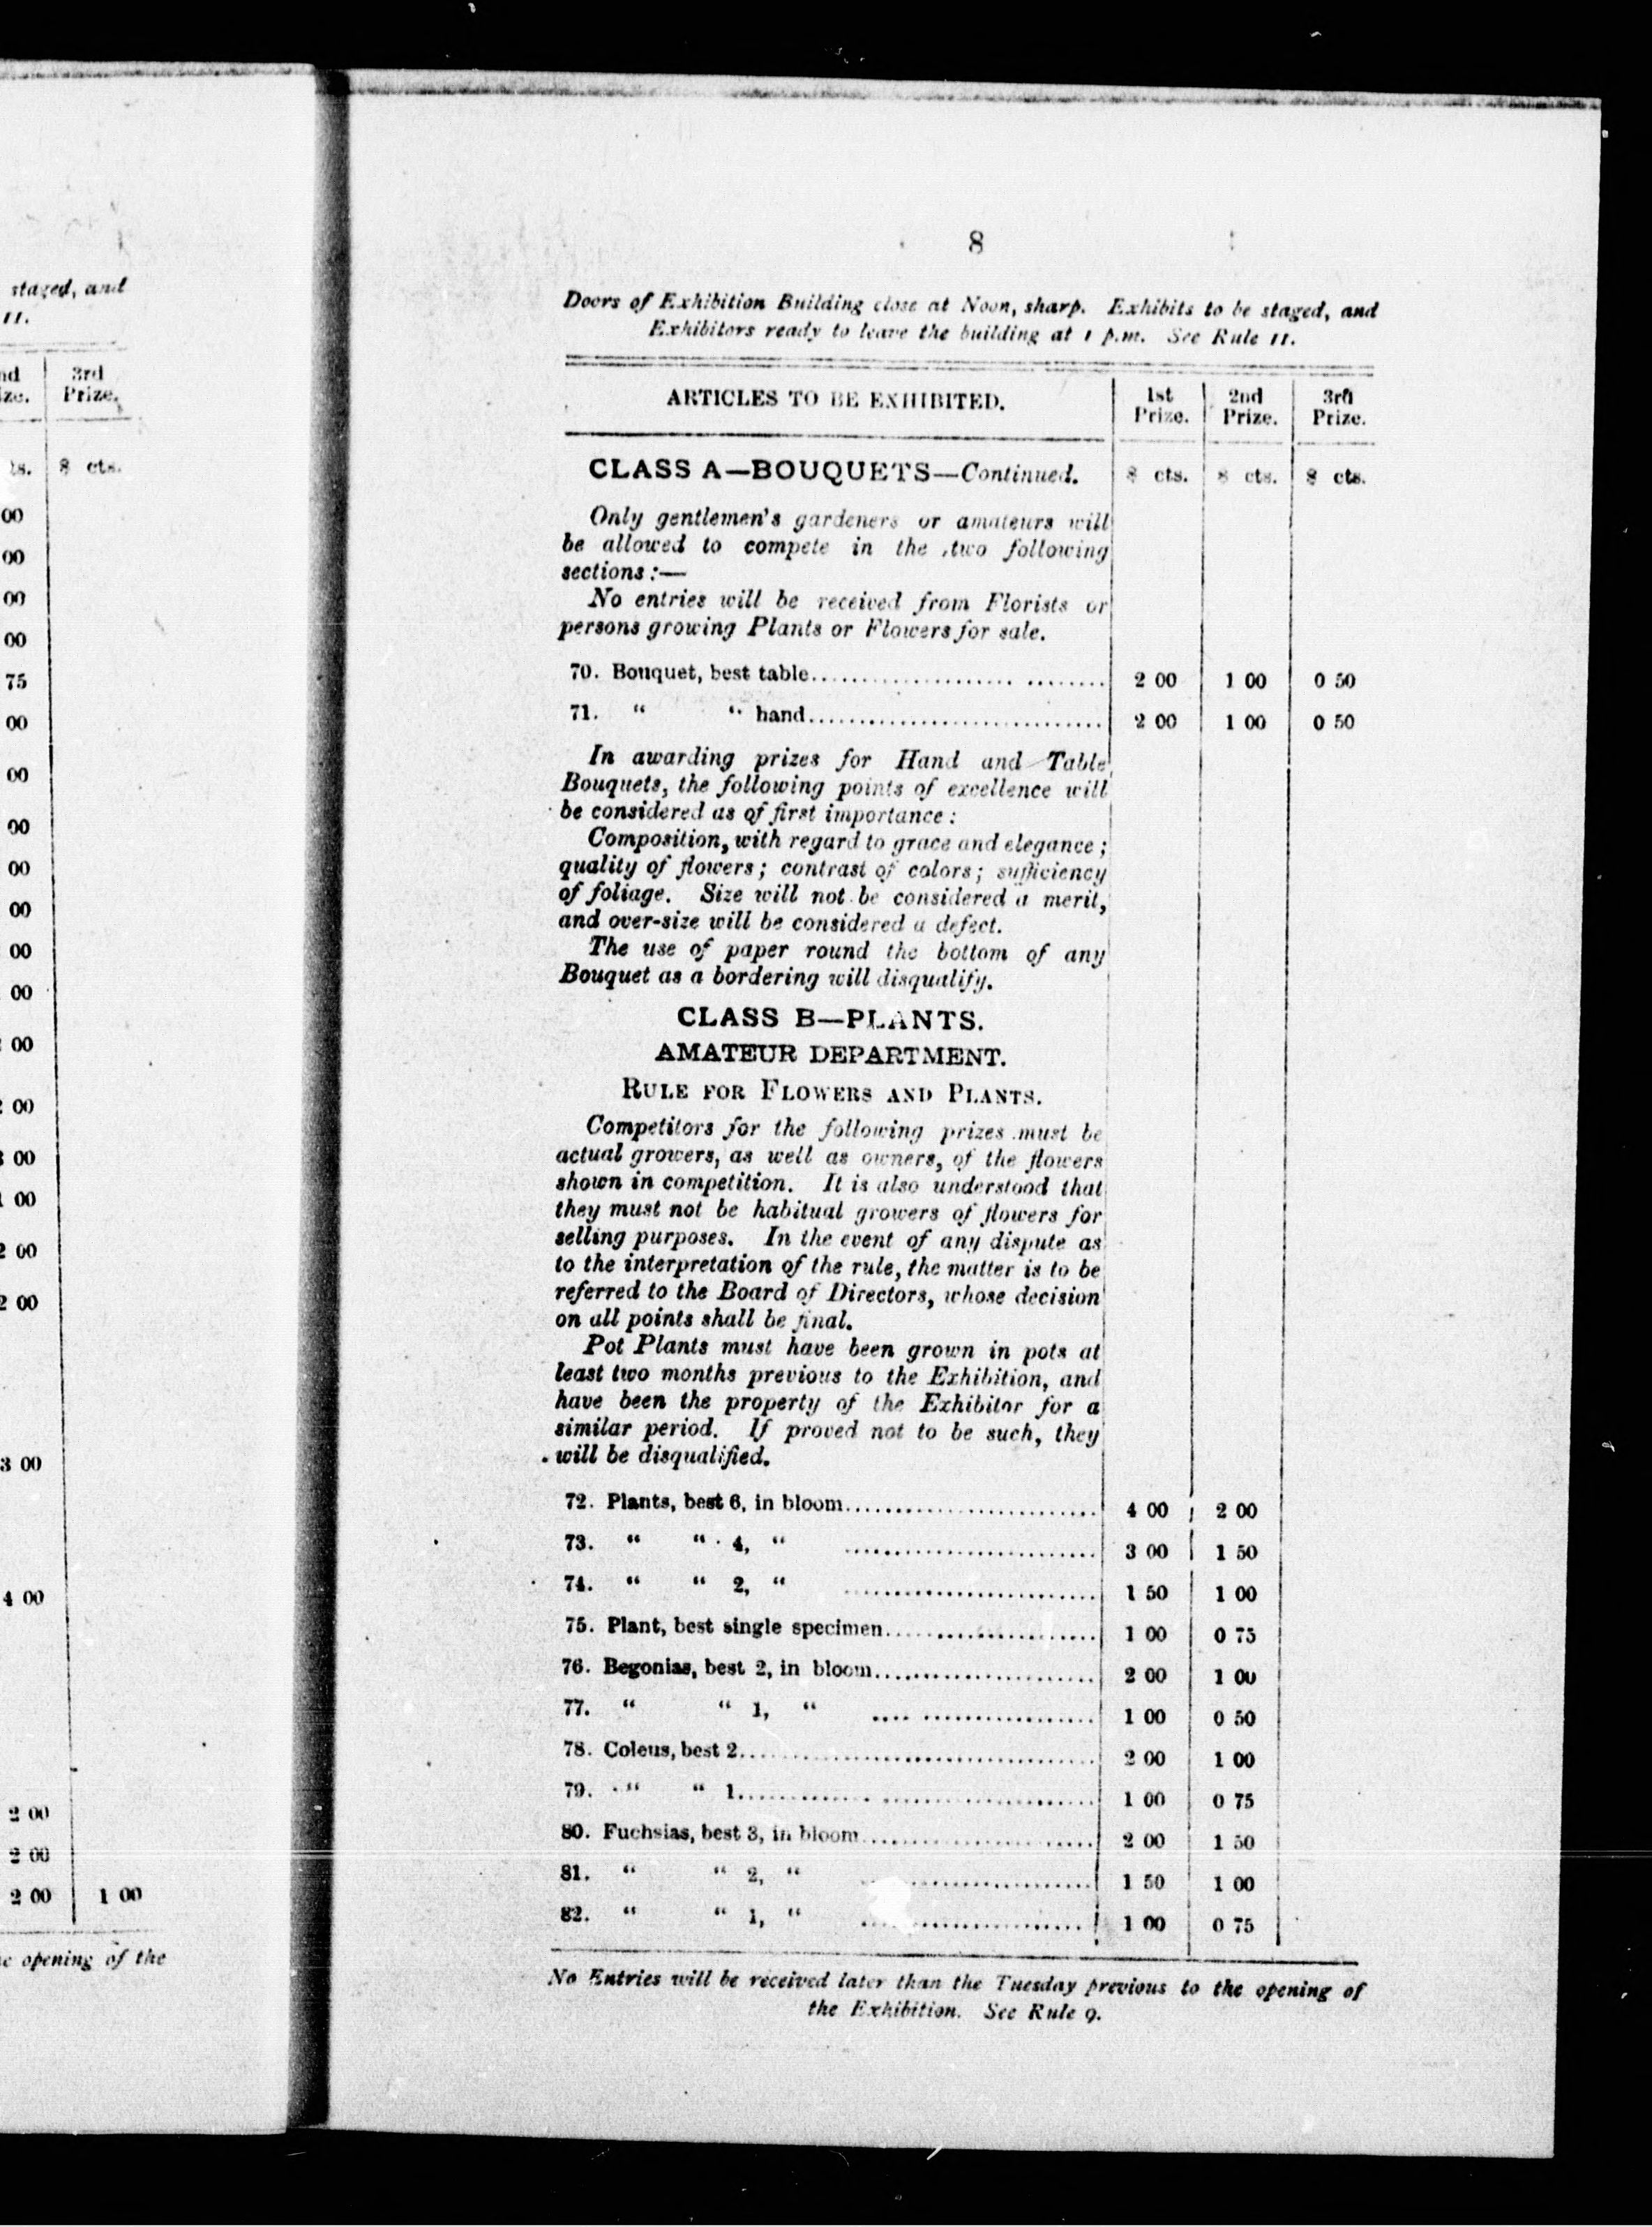 staged, and
11.
nd 3rd
ze. Prize.
ts. $ cts.
00
00
00
00
75
00
00
00
00
00
00
00
00
2 00
3 00
1 00
2 00
2 00
3 00
4 00
2 00
2 00
2 00 1 00
e opening of the
8
Doors of Exhibition Building close at Noon, sharp. Exhibits to be staged, and
Exhibitors ready to leave the building at 1 p.m. See Rule 11.
ARTICLES TO BE EXHIBITED. 1st Prize. 2nd Prize. 3rd Prize.
CLASS A—BOUQUETS—Continued. $ cts. $ cts. $ cts.
Only gentlemen's gardeners or amateurs will
be allowed to compete in the two following
sections:—
No entries will be received from Florists or
persons growing Plants or Flowers for sale.
70. Bouquet, best table.......... 2 00 1 00 0 50
71. " " hand.......... 2 00 1 00 0 50
In awarding prizes for Hand and Table
Bouquets, the following points of excellence will
be considered as of first importance:
Composition, with regard to grace and elegance;
quality of flowers; contrast of colors; sufficiency
of foliage. Size will not be considered a merit,
and over-size will be considered a defect.
The use of paper round the bottom of any
Bouquet as a bordering will disqualify.
CLASS B—PLANTS.
AMATEUR DEPARTMENT.
RULE FOR FLOWERS AND PLANTS.
Competitors for the following prizes must be
actual growers, as well as owners, of the flowers
shown in competition. It is also understood that
they must not be habitual growers of flowers for
selling purposes. In the event of any dispute as
to the interpretation of the rule, the matter is to be
referred to the Board of Directors, whose decision
on all points shall be final.
Pot Plants must have been grown in pots at
least two months previous to the Exhibition, and
have been the property of the Exhibitor for a
similar period. If proved not to be such, they
will be disqualified.
72. Plants, best 6, in bloom.......... 4 00 2 00
73. " " 4, " .......... 3 00 1 50
74. " " 2, " .......... 1 50 1 00
75. Plant, best single specimen.......... 1 00 0 75
76. Begonias, best 2, in bloom.......... 2 00 1 00
77. " " 1, " .......... 1 00 0 50
78. Coleus, best 2.......... 2 00 1 00
79. " " 1.......... 1 00 0 75
80. Fuchsias, best 3, in bloom.......... 2 00 1 50
81. " " 2, " .......... 1 50 1 00
82. " " 1, " .......... 1 00 0 75
No Entries will be received later than the Tuesday previous to the opening of
the Exhibition. See Rule 9.